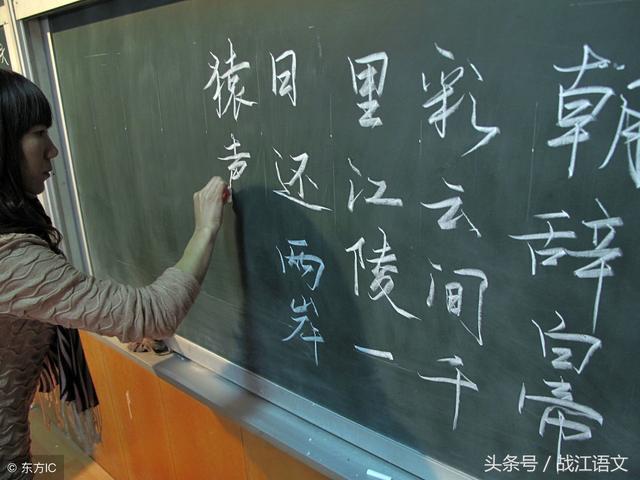 朝辞白帝
彩云间千
里江陵一
日还两岸
猿声
© 东方IC
头条号 / 战江语文